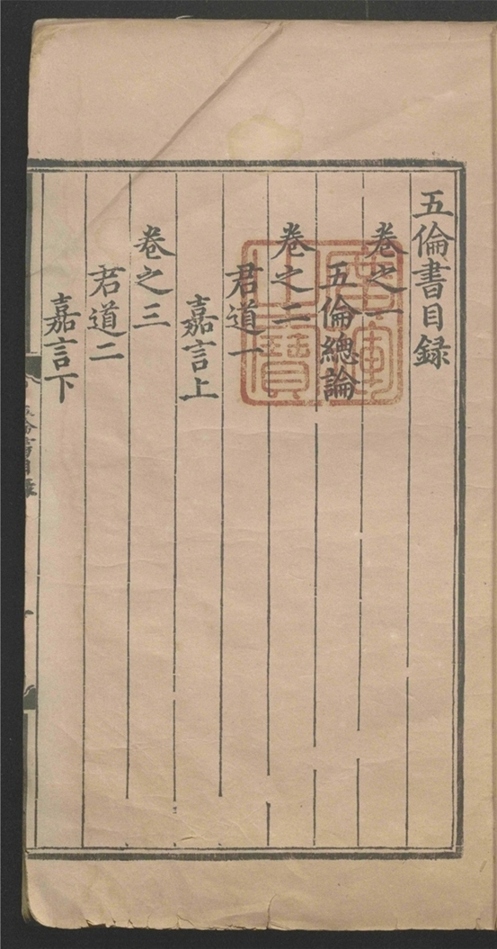 五倫書目録
卷之一
五倫總論
卷之二
君道一
嘉言上
卷之三
君道二
嘉言下
廣運之寶